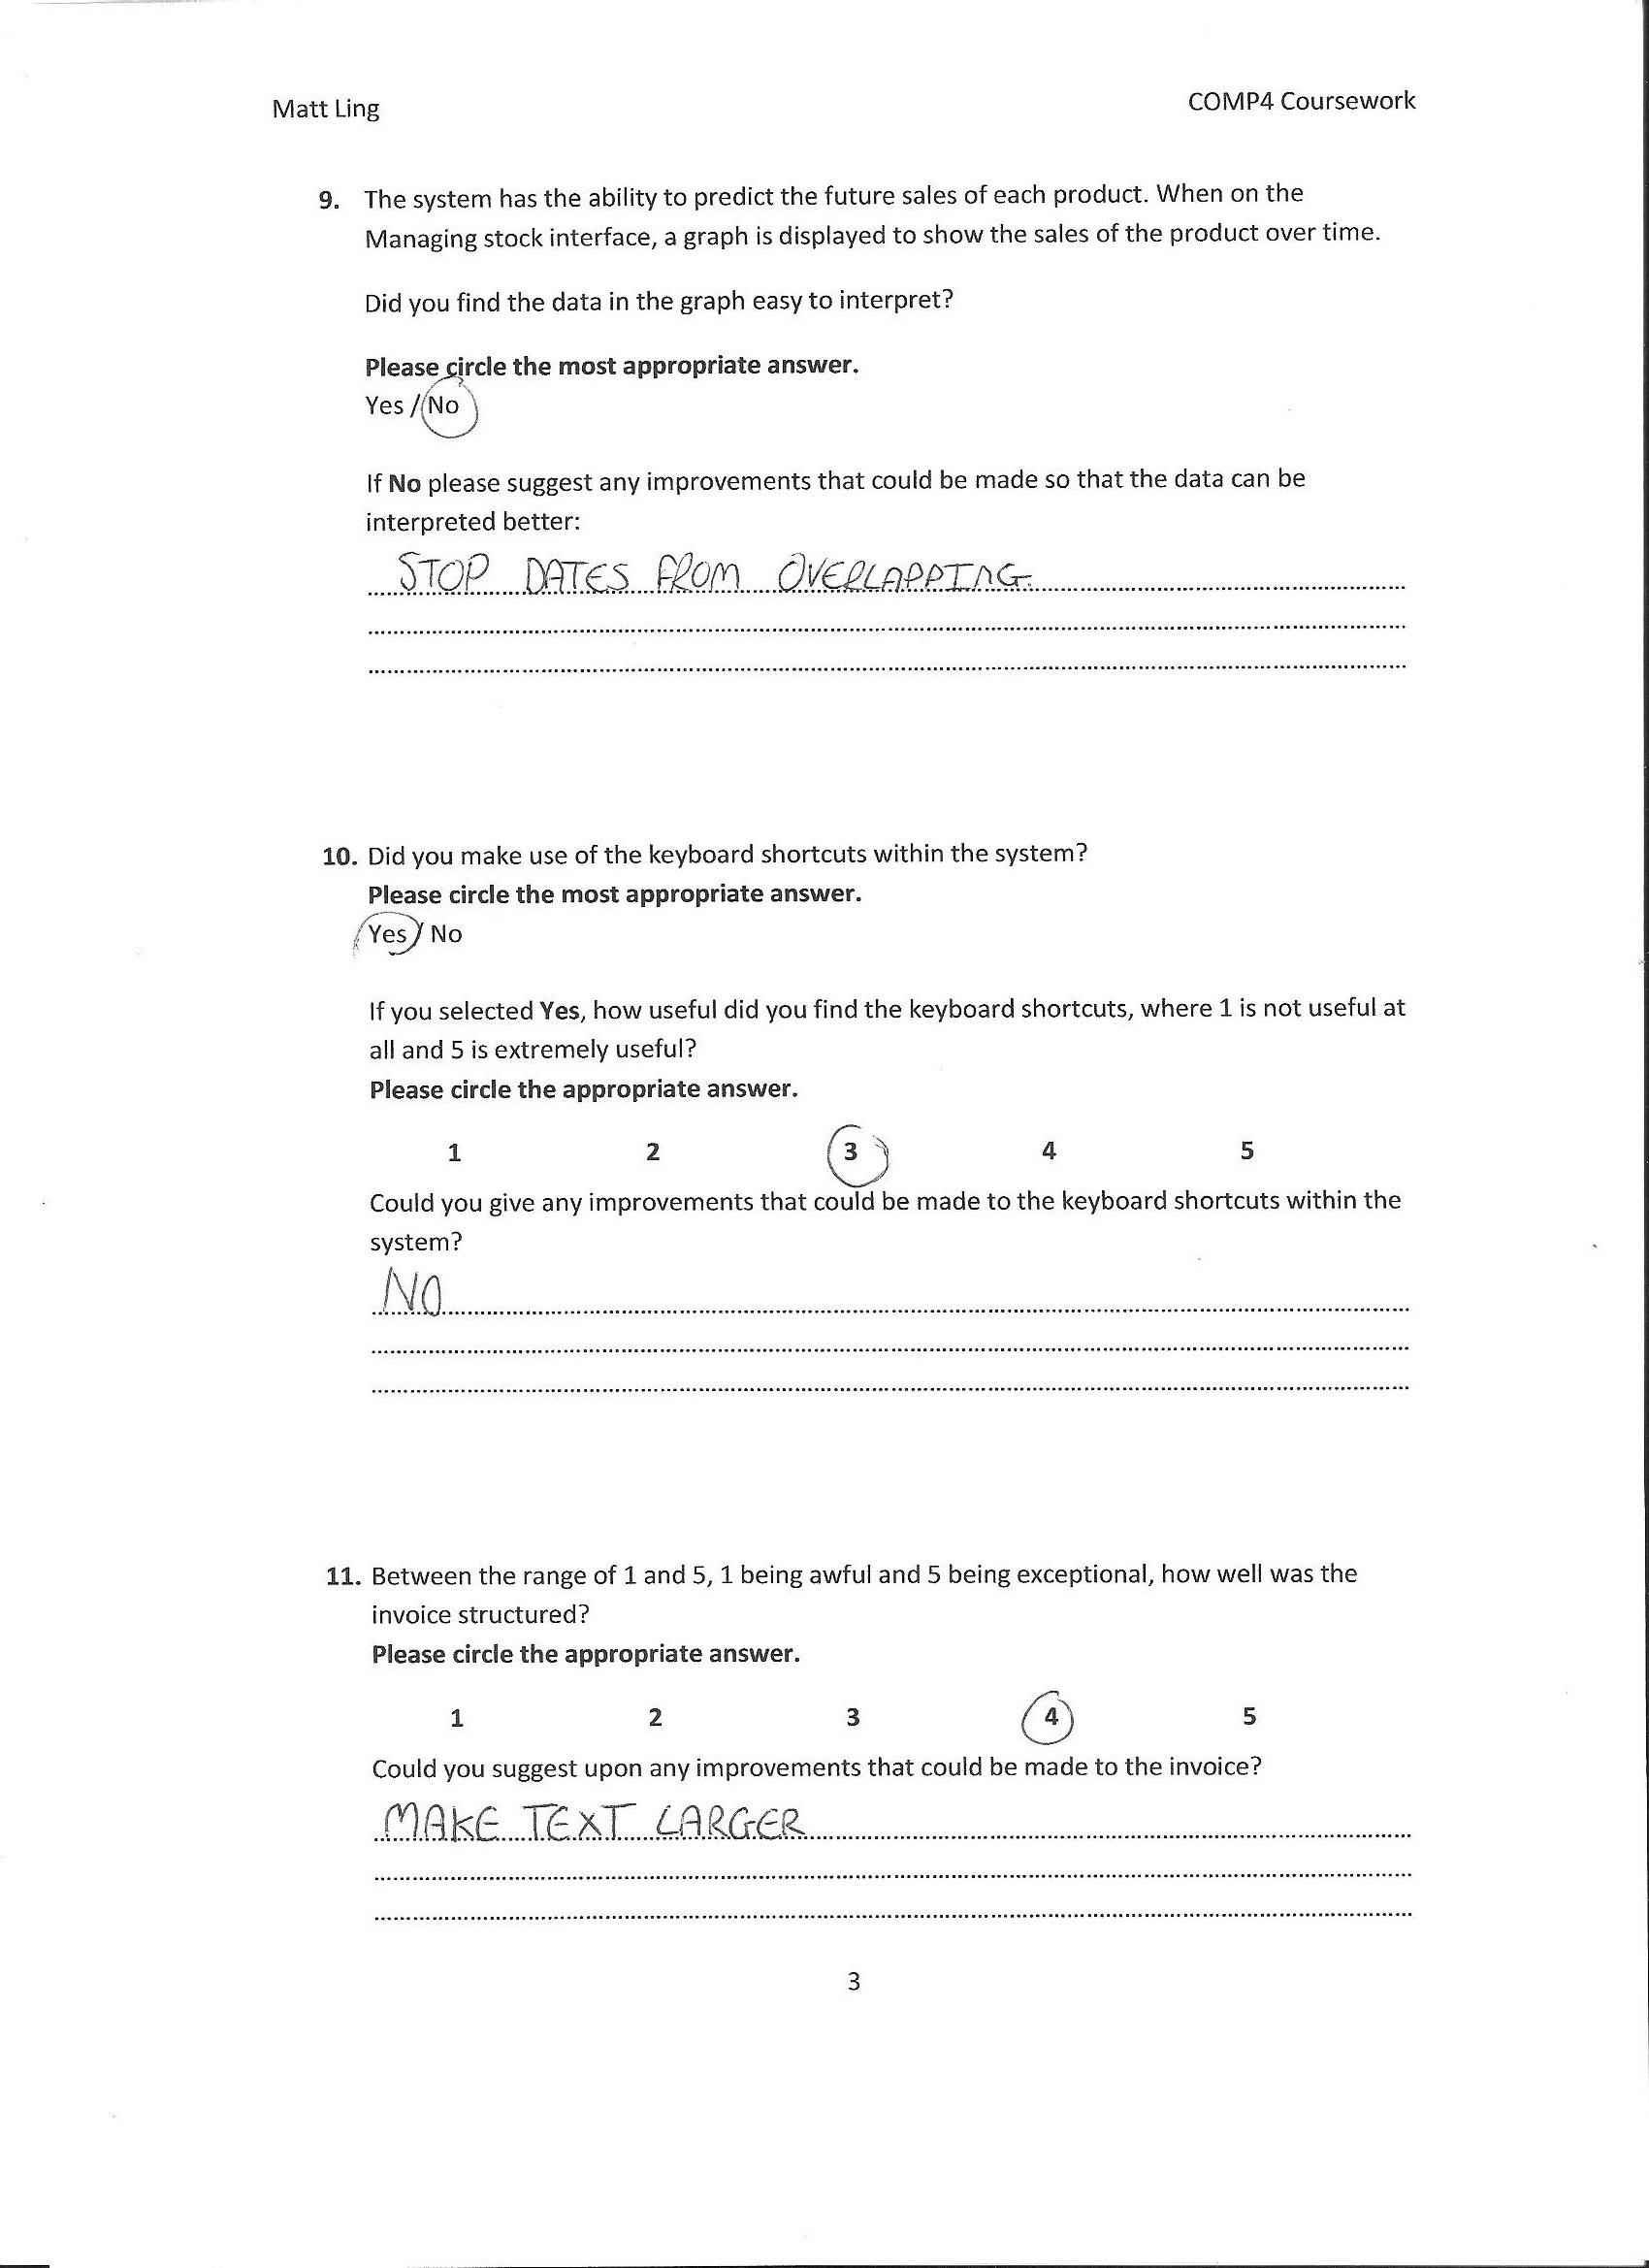 Matt Ling
COMP4 Coursework
9. The system has the ability to predict the future sales of each product. When on the
Managing stock interface, a graph is displayed to show the sales of the product over time.
Did you find the data in the graph easy to interpret?
Please circle the most appropriate answer.
Yes / No
If No please suggest any improvements that could be made so that the data can be
interpreted better:
STOP DATES FROM OVERLAPPING.
10. Did you make use of the keyboard shortcuts within the system?
Please circle the most appropriate answer.
Yes / No
If you selected Yes, how useful did you find the keyboard shortcuts, where 1 is not useful at
all and 5 is extremely useful?
Please circle the appropriate answer.
1 2 3 4 5
Could you give any improvements that could be made to the keyboard shortcuts within the
system?
NO
11. Between the range of 1 and 5, 1 being awful and 5 being exceptional, how well was the
invoice structured?
Please circle the appropriate answer.
1 2 3 4 5
Could you suggest upon any improvements that could be made to the invoice?
MAKE TEXT LARGER
3